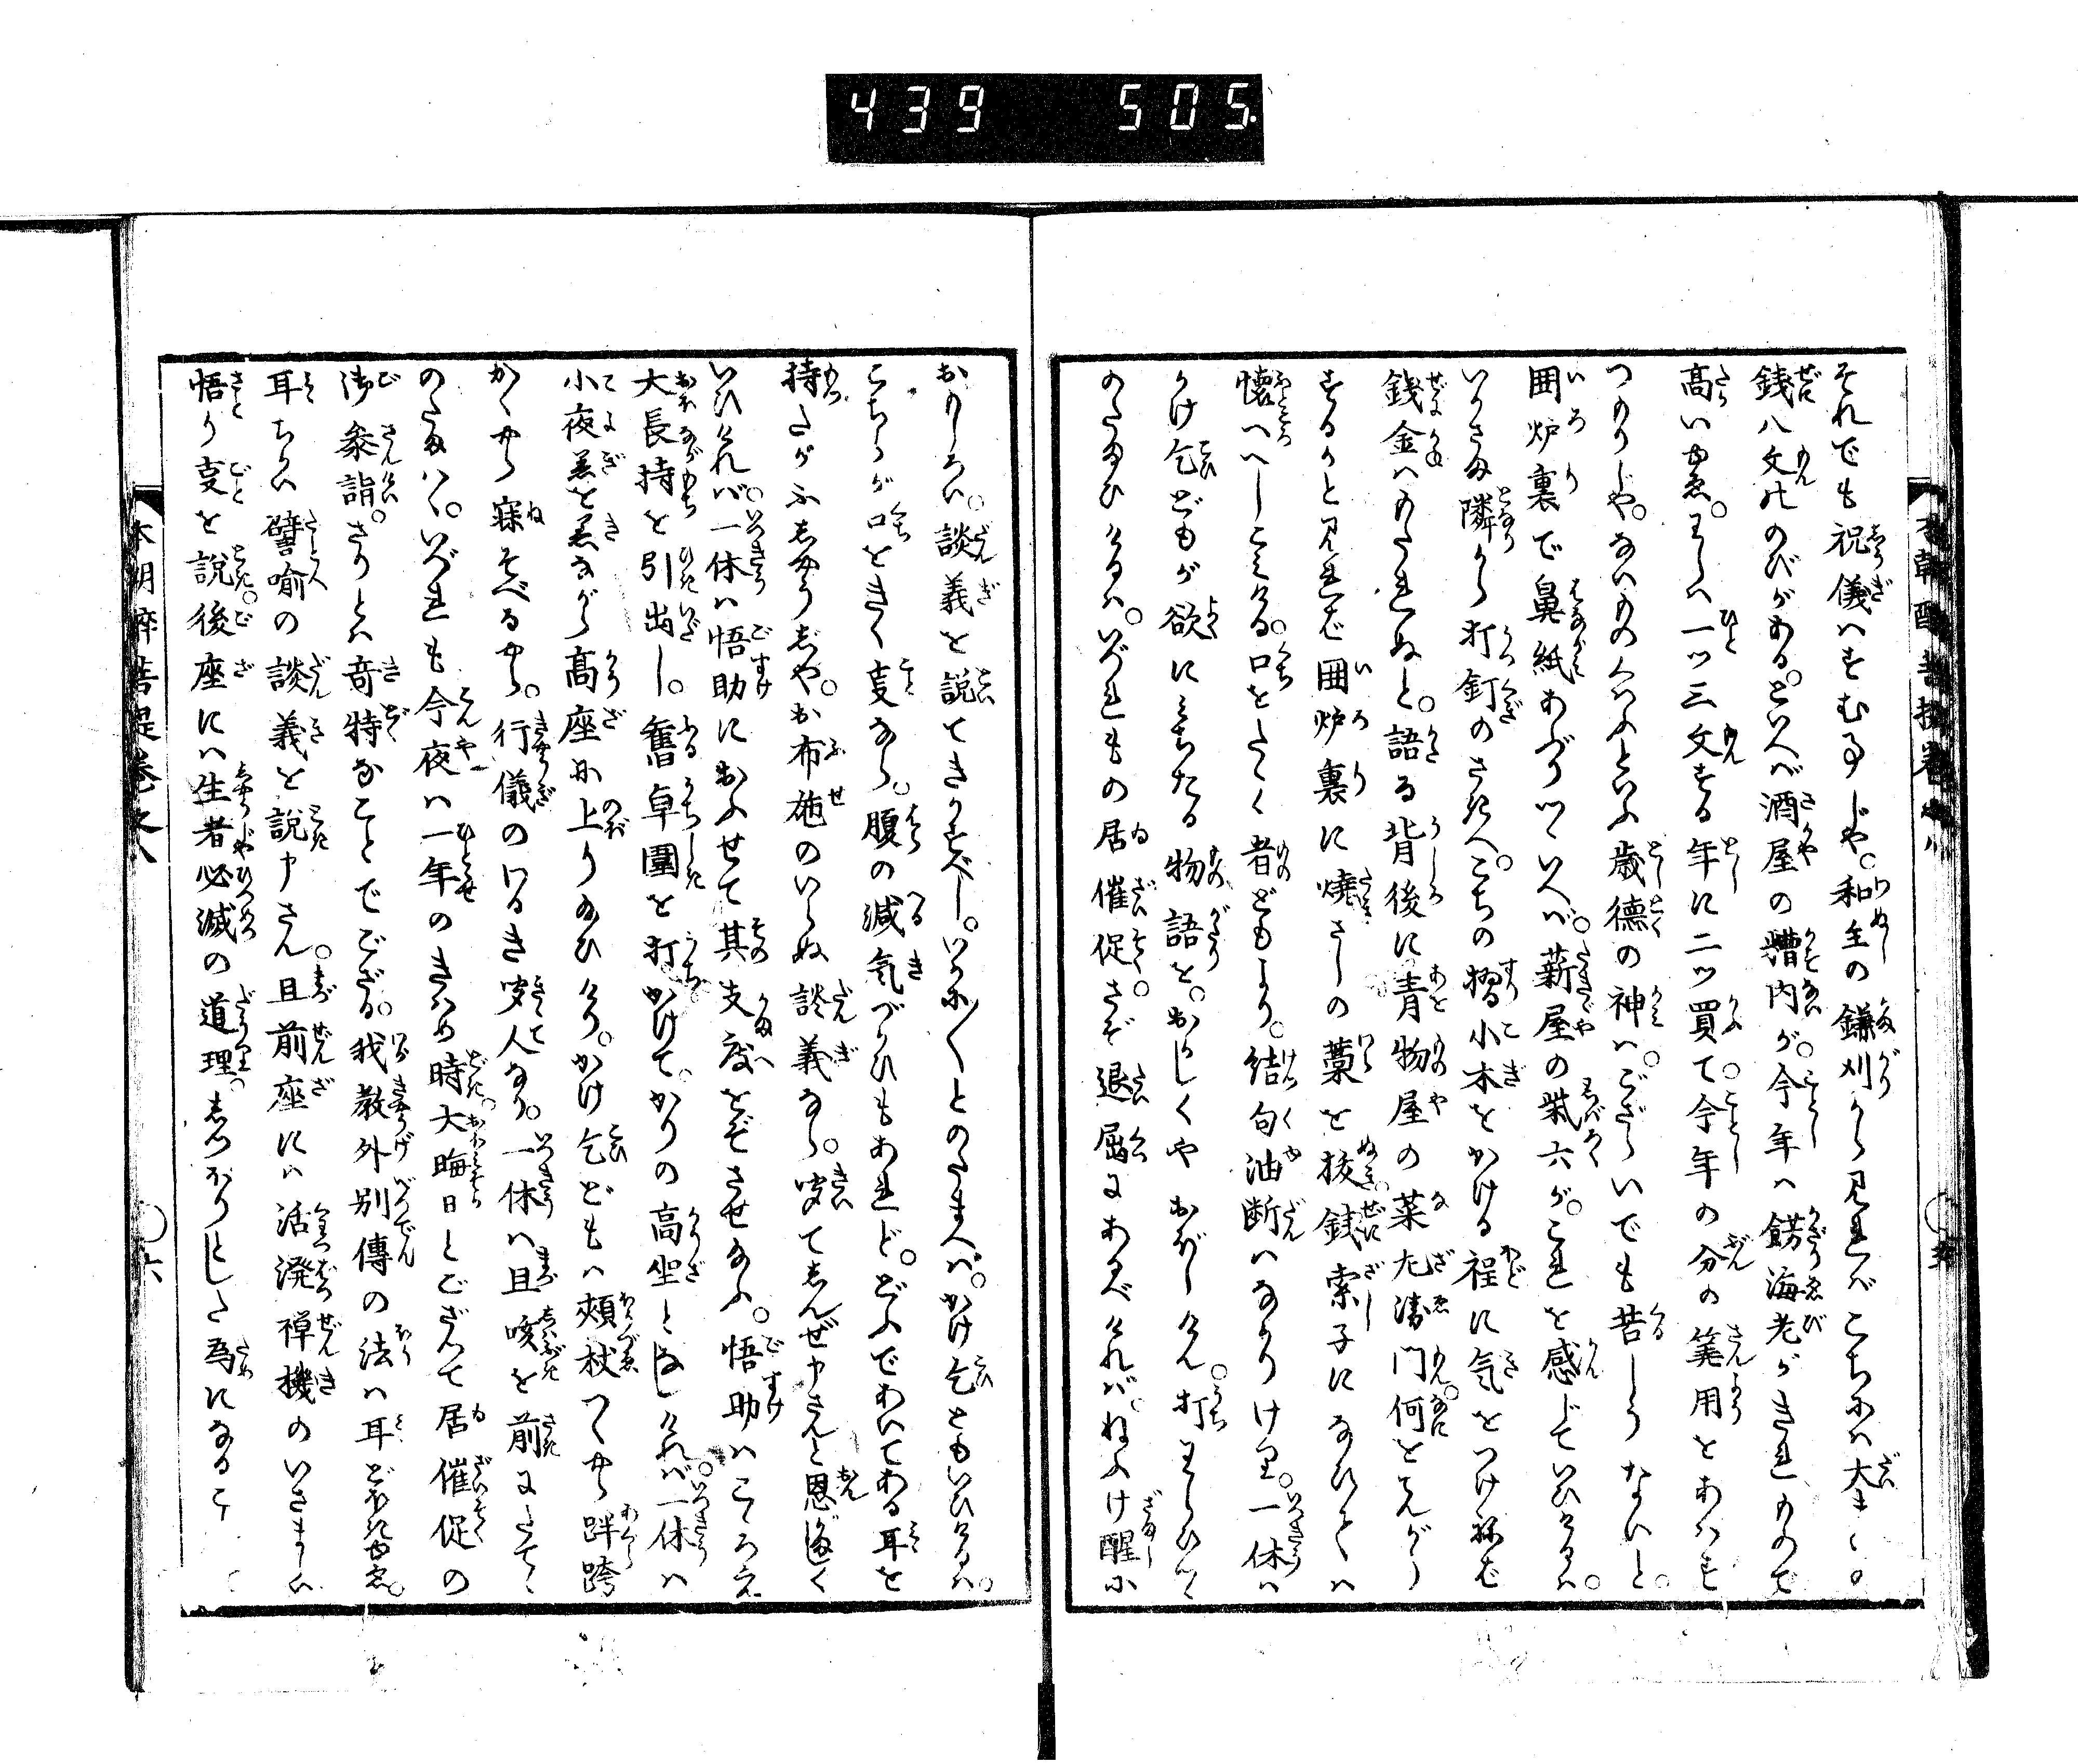 439 505
それでも祝儀はすむ事じや。和主の鎌刈から見ればこちには大きく
銭八文のびがある。といへば酒屋の糟内が。今年は餝海老がきれものて
高いゆゑ。わしは一ツ三文する年に二ツ買て今年の分の算用とあはす
つもりじや。なにものくはふといふ歳徳の神は。ござらいでも苦しうないと。
囲炉裏で鼻紙あぶりつゝいへば。薪屋の柴六が。これを感じていひけるは。
いかさま隣から打釘のさきへ。こちの摺小木をかける程に気をつけねば
銭金はのたれぬと。語る背後に青物屋の菜左衛門何をとながら
するかと見れば囲炉裏に焼さしの藁を抜銭索子になひては
懐へへしこみける。口をたゝく者どもより。結句油断はなかりけり。一休は
かけ乞どもが欲にみちたる物語を。おかしくやおぼしけん。打わらひつゝ
のたまひけるは。いづれもの居催促。さぞ退屈にあるべければ。ねふけ醒に
おもしろい。談義を説てきかすべし。いかに〳〵とのたまへば。かけ乞ともいひけるは。
こちらが口をきく事なら。腹の減気づかひもあれど。どふであいてある耳を
持たが不しやうじや。お布施のいらぬ談義なら。聞てしんぜ申さんと恩がましく
いひければ。一休は悟助におふせて其支度をぞさせ給ふ。悟助はこゝろえ
大長持を引出し。舊卓圍を打かけて。かりの高坐となしければ。一休は
小夜着を着ながら高座に上り給ひけり。かけ乞どもは頬杖つくやら跘跨
かくやら寐そべるやら。行儀のわるき聞人なり。一休は且咳を前にたてゝ
のたまはく。いづれも今夜は一年のきはめ時大晦日とござつて居催促の
御參詣。さりとは奇特なことでござる。我教外別傳の法は耳どほきゆゑ。
耳ちかい譬喩の談義を説申さん。且前座には活溌禅機のいさましい
悟り事を説。後座には生者必滅の道理。しつぽりとした為になるこ
本朝醉菩提卷之八
五
本朝醉菩提卷之八
六